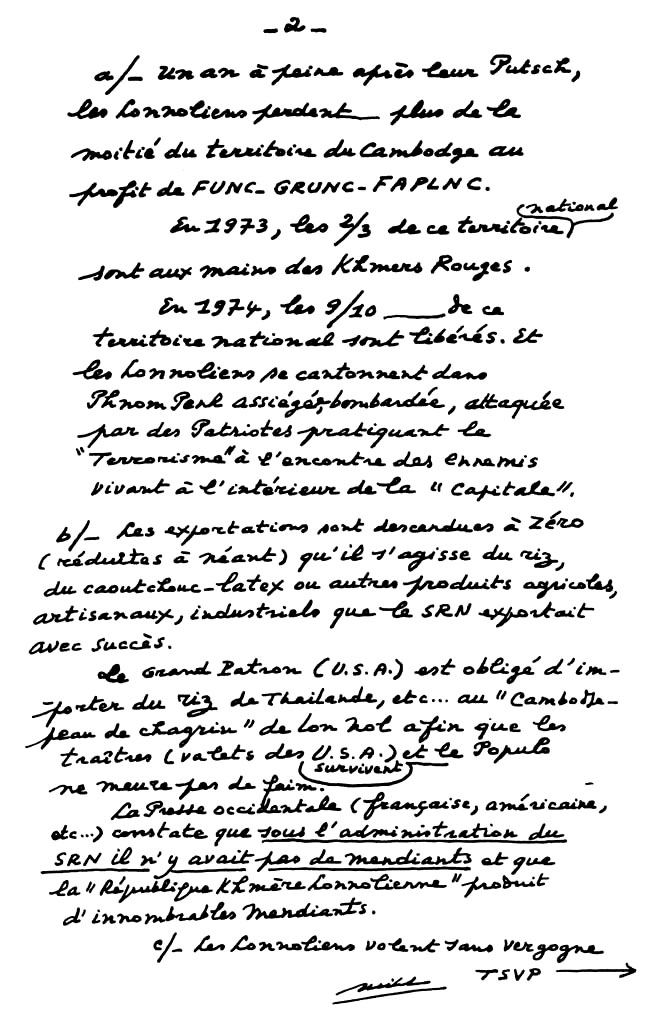 - 2 -
a/- Un an à peine après leur Putsch,
les Lonnoliens perdent ___ plus de la
moitié du territoire du Cambodge au
profit de FUNC-GRUNC-FAPLNC.
(national)
En 1973, les 2/3 de ce territoire
sont aux mains des Khmers Rouges.
En 1974, les 9/10 ____ de ce
territoire national sont libérés. Et
les Lonnoliens se cantonnent dans
Phnom Penh assiégée, bombardée, attaquée
par des Patriotes pratiquant le
"Terrorisme" à l'encontre des ennemis
vivant à l'intérieur de la "Capitale".
b/- Les exportations sont descendues à Zéro
(réduites à néant) qu'il s'agisse du riz,
du caoutchouc-latex ou autres produits agricoles,
artisanaux, industriels que le SRN exportait
avec succès.
Le Grand Patron (U.S.A.) est obligé d'im-
-porter du riz de Thaïlande, etc... au "Cambodge-
peau de chagrin" de Lon Nol afin que les
traîtres (valets des U.S.A.) et le Populo
(survivent)
ne meure pas de faim.
La Presse occidentale (française, américaine,
etc...) constate que sous l'administration du
SRN il n'y avait pas de mendiants et que
la "République Khmère Lonnolienne" produit
d'innombrables Mendiants.
c/- Les Lonnoliens volent sans vergogne
TSVP →